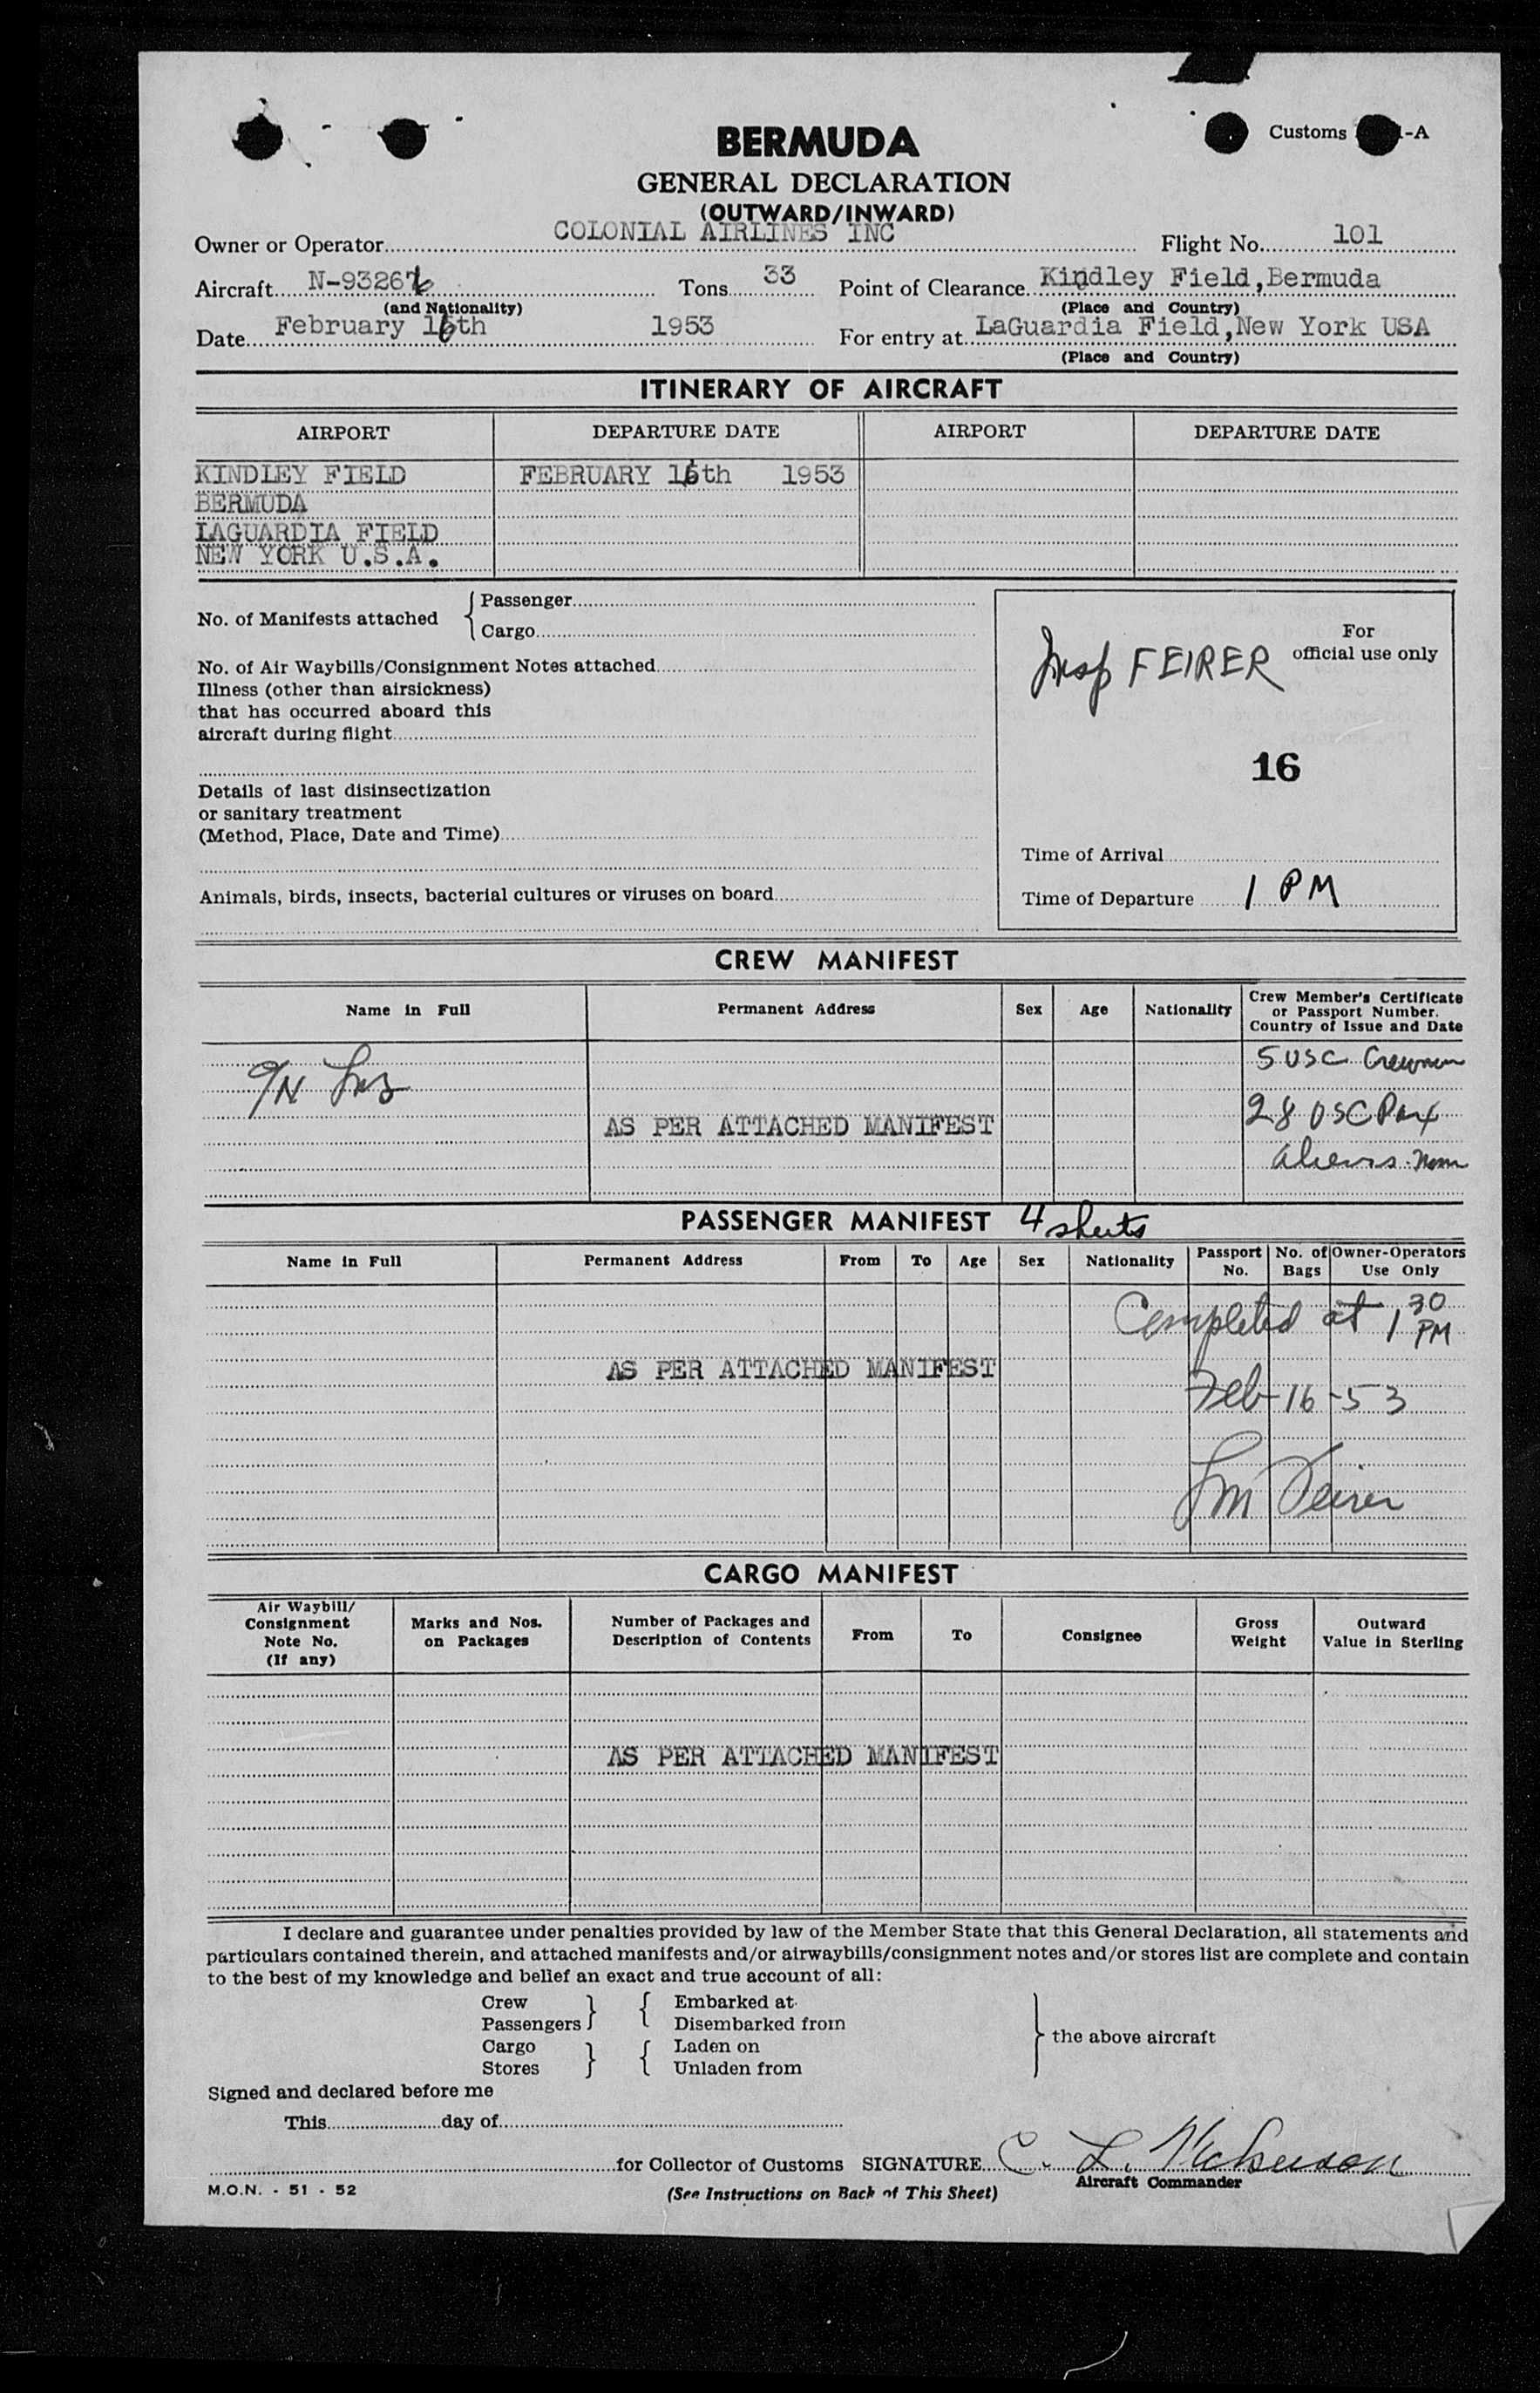 Customs -A
BERMUDA
GENERAL DECLARATION
(OUTWARD/INWARD)
Owner or Operator COLONIAL AIRLINES INC Flight No. 101
Aircraft N-93266 Tons 33 Point of Clearance Kindley Field,Bermuda
(and Nationality) (Place and Country)
Date February 16th 1953 For entry at LaGuardia Field,New York USA
(Place and Country)
ITINERARY OF AIRCRAFT
AIRPORT DEPARTURE DATE AIRPORT DEPARTURE DATE
KINDLEY FIELD FEBRUARY 16th 1953
BERMUDA
LAGUARDIA FIELD
NEW YORK U.S.A.
No. of Manifests attached { Passenger
Cargo
For
official use only
Insp FEIRER
No. of Air Waybills/Consignment Notes attached
Illness (other than airsickness)
that has occurred aboard this
aircraft during flight
16
Details of last disinsectization
or sanitary treatment
(Method, Place, Date and Time)
Time of Arrival
Animals, birds, insects, bacterial cultures or viruses on board
Time of Departure 1 PM
CREW MANIFEST
Name in Full Permanent Address Sex Age Nationality Crew Member's Certificate
or Passport Number.
Country of Issue and Date
5 USC Crewmen
AS PER ATTACHED MANIFEST 28 USC Pax
aliens - None
PASSENGER MANIFEST 4 sheets
Name in Full Permanent Address From To Age Sex Nationality Passport No. No. of Bags Owner-Operators Use Only
Completed at 1 30 PM
AS PER ATTACHED MANIFEST
Feb-16-53
Feirer
CARGO MANIFEST
Air Waybill/
Consignment
Note No.
(If any) Marks and Nos.
on Packages Number of Packages and
Description of Contents From To Consignee Gross
Weight Outward
Value in Sterling
AS PER ATTACHED MANIFEST
I declare and guarantee under penalties provided by law of the Member State that this General Declaration, all statements and
particulars contained therein, and attached manifests and/or airwaybills/consignment notes and/or stores list are complete and contain
to the best of my knowledge and belief an exact and true account of all:
Crew } { Embarked at
Passengers Disembarked from
Cargo } { Laden on } the above aircraft
Stores Unladen from
Signed and declared before me
This day of
for Collector of Customs SIGNATURE C. L.
Aircraft Commander
M.O.N. - 51 - 52 (See Instructions on Back of This Sheet)